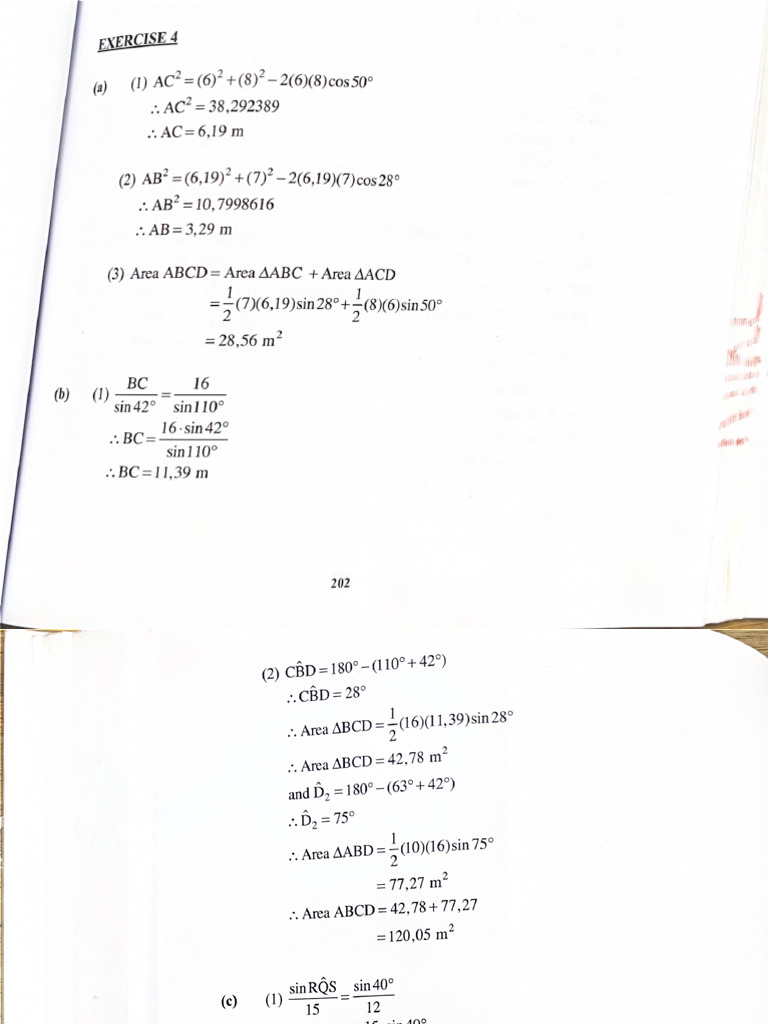 EXERCISE 4
(a) (1) AC² = (6)² + (8)² − 2(6)(8)cos50°
∴ AC² = 38,292389
∴ AC = 6,19 m
(2) AB² = (6,19)² + (7)² − 2(6,19)(7)cos28°
∴ AB² = 10,7998616
∴ AB = 3,29 m
(3) Area ABCD = Area ΔABC + Area ΔACD
= 1/2 (7)(6,19)sin28° + 1/2 (8)(6)sin50°
= 28,56 m²
(b) (1) BC/sin42° = 16/sin110°
∴ BC = 16·sin42°/sin110°
∴ BC = 11,39 m
202
(2) CB̂D = 180° − (110° + 42°)
∴ CB̂D = 28°
∴ Area ΔBCD = 1/2 (16)(11,39)sin28°
∴ Area ΔBCD = 42,78 m²
and D̂₂ = 180° − (63° + 42°)
∴ D̂₂ = 75°
∴ Area ΔABD = 1/2 (10)(16)sin75°
= 77,27 m²
∴ Area ABCD = 42,78 + 77,27
= 120,05 m²
(c) (1) sinRQ̂S/15 = sin40°/12